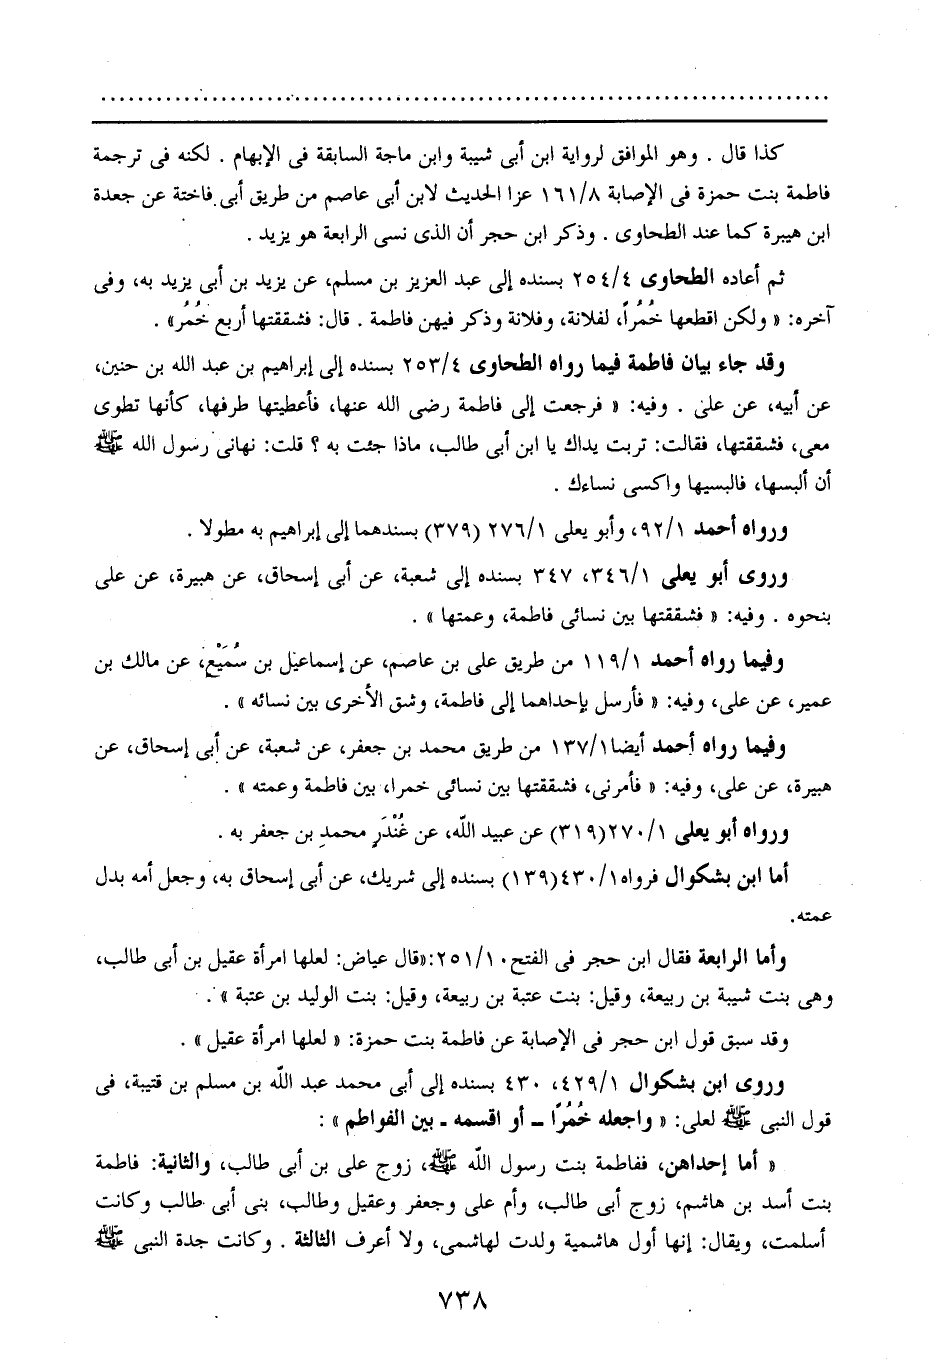 كذا قال . وهو الموافق لرواية ابن أبى شيبة وابن ماجة السابقة فى الإبهام . لكنه فى ترجمة
فاطمة بنت حمزة فى الإصابة ١٦١/٨ عزا الحديث لابن أبى عاصم من طريق أبى فاختة عن جعدة
ابن هبيرة كما عند الطحاوى . وذكر ابن حجر أن الذى نسى الرابعة هو يزيد .
ثم أعاده الطحاوى ٢٥٤/٤ بسنده إلى عبد العزيز بن مسلم، عن يزيد بن أبى يزيد به، وفى
آخره: « ولكن اقطعها خُمُراً، لفلانة، وفلانة وذكر فيهن فاطمة . قال: فشققتها أربع خُمُر» .
وقد جاء بيان فاطمة فيما رواه الطحاوى ٢٥٣/٤ بسنده إلى إبراهيم بن عبد الله بن حنين،
عن أبيه، عن على . وفيه: « فرجعت إلى فاطمة رضى الله عنها، فأعطيتها طرفها، كأنها تطوى
معى، فشققتها، فقالت: تربت يداك يا ابن أبى طالب، ماذا جئت به ؟ قلت: نهانى رسول الله ﷺ
أن ألبسها، فالبسيها واكسى نساءك .
ورواه أحمد ٩٢/١، وأبو يعلى ٢٧٦/١ (٣٧٩) بسندهما إلى إبراهيم به مطولا .
وروى أبو يعلى ٣٤٦/١، ٣٤٧ بسنده إلى شعبة، عن أبى إسحاق، عن هبيرة، عن على
بنحوه . وفيه: « فشققتها بين نسائى فاطمة، وعمتها » .
وفيما رواه أحمد ١١٩/١ من طريق على بن عاصم، عن إسماعيل بن سُمَيْعٍ، عن مالك بن
عمير، عن على، وفيه: « فأرسل بإحداهما إلى فاطمة، وشق الأخرى بين نسائه » .
وفيما رواه أحمد أيضا١٣٧/١ من طريق محمد بن جعفر، عن شعبة، عن أبى إسحاق، عن
هبيرة، عن على، وفيه: « فأمرنى، فشققتها بين نسائى خمرا، بين فاطمة وعمته » .
ورواه أبو يعلى ٢٧٠/١(٣١٩) عن عبيد الله، عن غُنْدَرٍ محمد بن جعفر به .
أما ابن بشكوال فرواه٤٣٠/١(١٣٩) بسنده إلى شريك، عن أبى إسحاق به، وجعل أمه بدل
عمته.
وأما الرابعة فقال ابن حجر فى الفتح٢٥١/١٠:«قال عياض: لعلها امرأة عقيل بن أبى طالب،
وهى بنت شيبة بن ربيعة، وقيل: بنت عتبة بن ربيعة، وقيل: بنت الوليد بن عتبة » .
وقد سبق قول ابن حجر فى الإصابة عن فاطمة بنت حمزة: « لعلها امرأة عقيل » .
وروى ابن بشكوال ٤٢٩/١، ٤٣٠ بسنده إلى أبى محمد عبد الله بن مسلم بن قتيبة، فى
قول النبى ﷺ لعلى: « واجعله خُمُرًا ــ أو اقسمه ـ بين الفواطم » :
« أما إحداهن، ففاطمة بنت رسول الله ﷺ، زوج على بن أبى طالب، والثانية: فاطمة
بنت أسد بن هاشم، زوج أبى طالب، وأم على وجعفر وعقيل وطالب، بنى أبى طالب وكانت
أسلمت، ويقال: إنها أول هاشمية ولدت لهاشمى، ولا أعرف الثالثة . وكانت جدة النبى ﷺ
٧٣٨